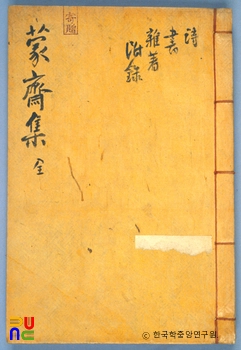 詩
書
雜著
附錄
寄贈
蒙齋集 全
FUNC
ⓒ 한국학중앙연구원